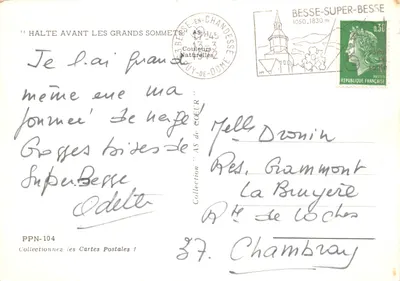 "HALTE AVANT LES GRANDS SOMMETS"
Je l'ai quand
même eue ma
journée de neige
Grosses bises de
SuperBesse
Odette
PPN-104
Collectionnez les Cartes Postales !
Couleurs
Naturelles
Collection "AS de CŒUR"
BESSE-EN-CHANDESSE
PUY-DE-DÔME
BESSE-SUPER-BESSE
1050.1850 m
0,30
REPUBLIQUE FRANÇAISE
Melles Dronin
Res. Grammont
La Bruyère
Rte de Loches
37. Chambray